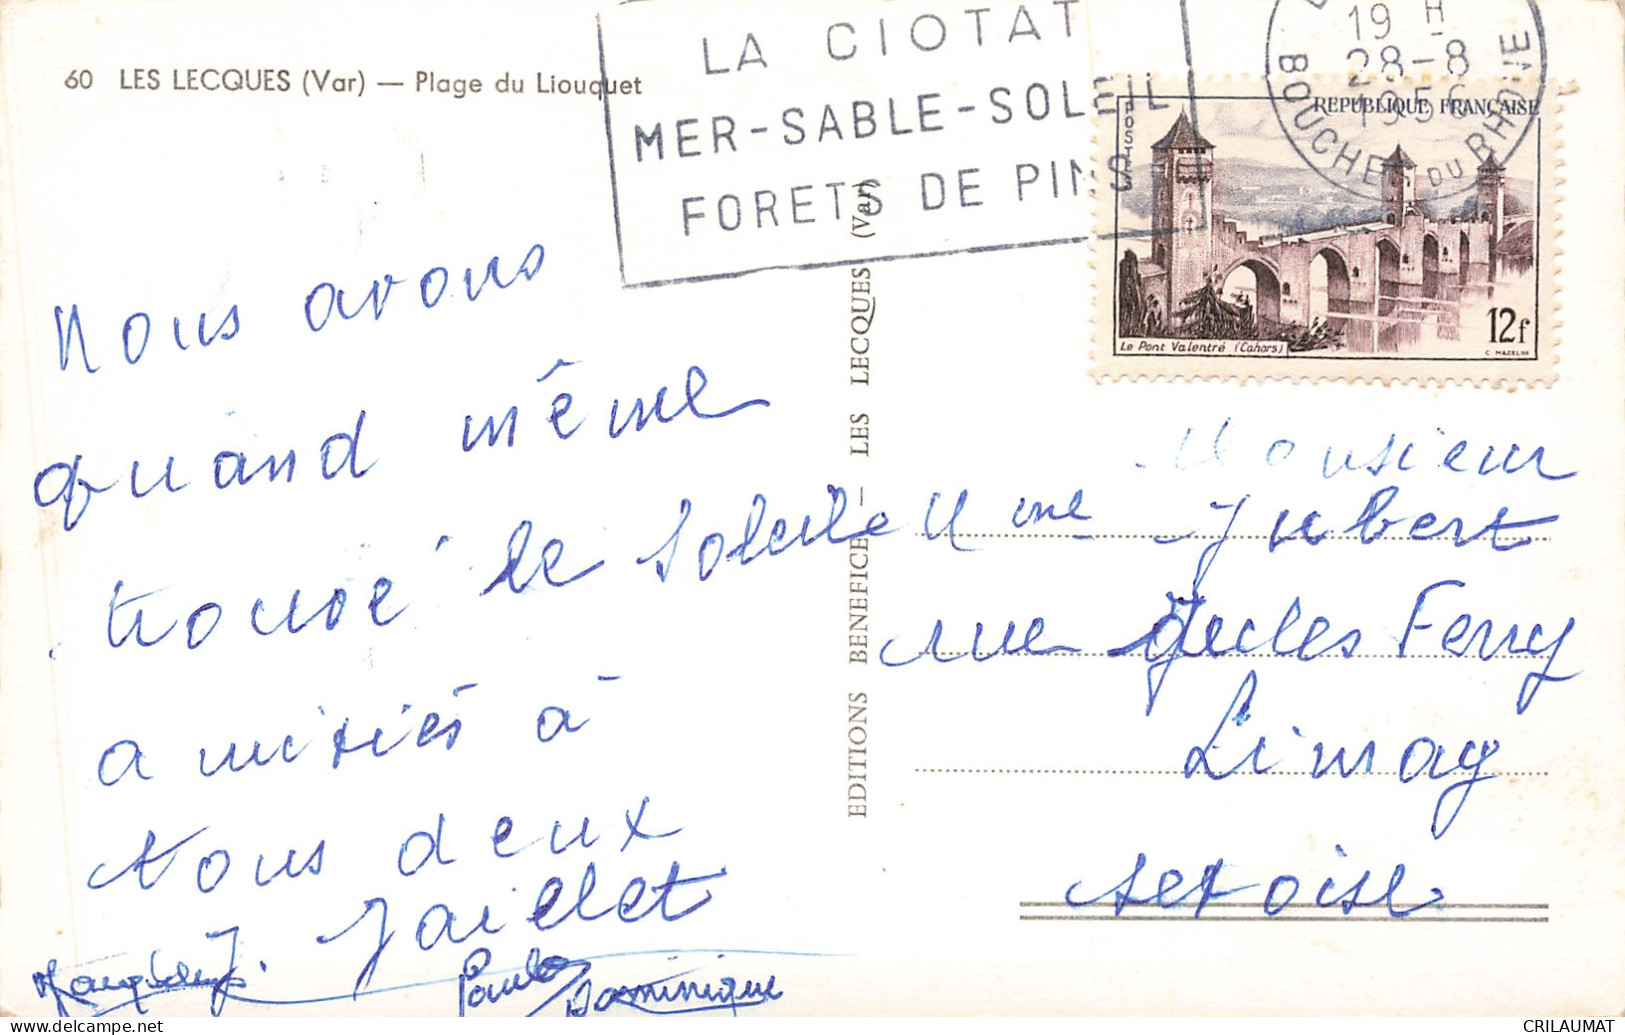 60 LES LECQUES (Var) — Plage du Liouquet
LA CIOTAT
MER-SABLE-SOLEIL
FORETS DE PINS
19 H
28-8
1956
BOUCHES DU RHONE
POSTES
REPUBLIQUE FRANÇAISE
12f
Le Pont Valentré (Cahors)
C. MAZELIN
EDITIONS BENEFICE — LES LECQUES (Var)
Nous avons
quand même
trouvé le soleil
amitiés à
tous deux
J. Jaillet
Paulo
Dominique
Monsieur
et Mme Jubert
rue Jules Ferry
Limay
Set Oise
CRILAUMAT